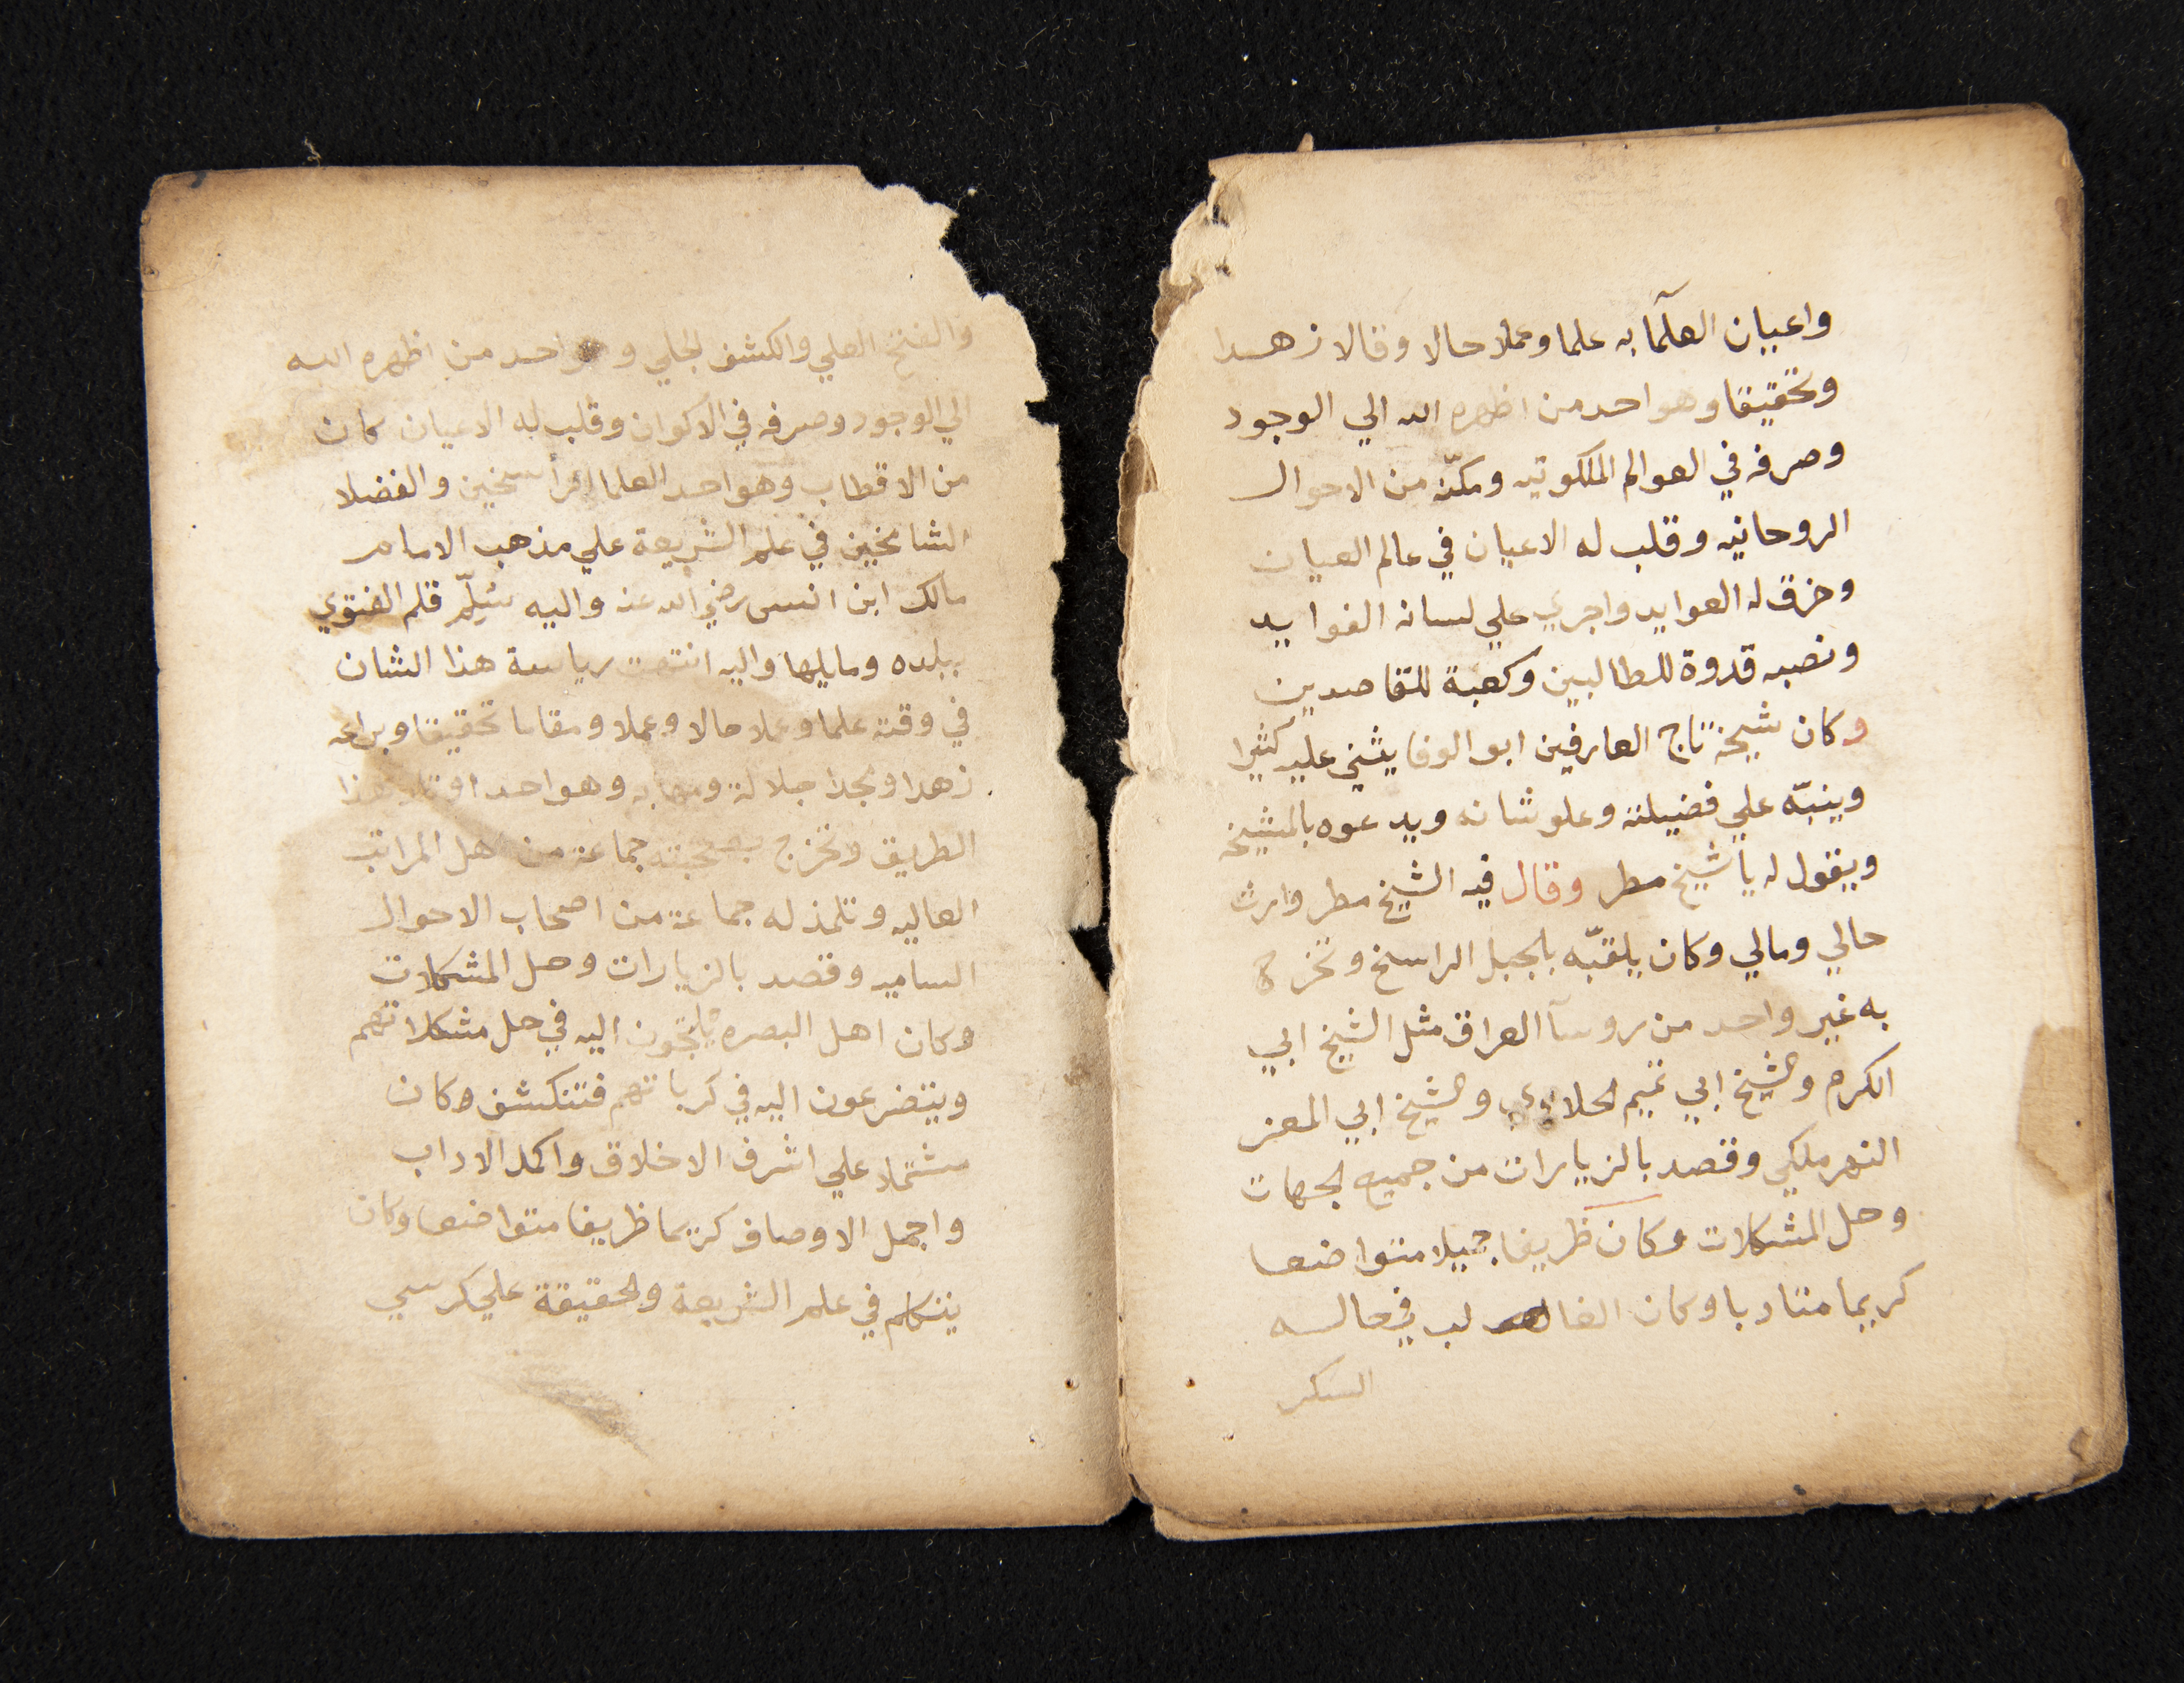 واعيان العلمآ به علما وعملا حالا وقالا زهدا
وتحقيقا وهو احد من اظهره الله الي الوجود
وصرفه في العوالم الملكوتيه ومكنّه من الاحوال
الروحانيه وقلب له الاعيان في عالم العيان
وخرق له العوايد واجري علي لسانه الفوايد
ونصبه قدوة للطالبين وكعبة للقاصدين
وكان شيخه تاج العارفين ابو الوفا يثني عليه كثيرا
وينبّه علي فضيلته وعلو شانه ويدعوه بالمشيخه
ويقول له يا شيخ مطر وقال فيه الشيخ مطر وارث
حالي ومالي وكان يلقبّه بالجبل الراسخ وتخرج
به غير واحد من روسآ العراق مثل الشيخ ابي
الكرم والشيخ ابي تميم الحلاوي والشيخ ابي المعز
النهر ملكي وقصد بالزيارات من جميع الجهات
وحل المشكلات وكان ظريفا جميلا متواضعا
كريما متادبا وكان الغالب في حاله
السكر
والفتح العلي والكشف الجلي وهو احد من اظهره الله
الي الوجود وصرفه في الاكوان وقلب له الاعيان كان
من الاقطاب وهو احد العلما الراسخين والفضلا
الشامخين في علم الشريعة علي مذهب الامام
مالك ابن انس رضي الله عنه واليه سُلّم قلم الفتوي
ببلده ومايليها واليه انتهت رياسة هذا الشان
في وقته علما وعملا حالا وعملا ومقاما تحقيقا وبراعه
زهدا ومجدا جلالة ومهابه وهو احد اوتاد هذا
الطريق وتخرج بصحبته جماعة من اهل المراتب
العاليه وتلمذ له جماعة من اصحاب الاحوال
الساميه وقصد بالزيارات وحل المشكلات
وكان اهل البصره يلتجون اليه في حل مشكلاتهم
ويتضرعون اليه في كرباتهم فتنكشف وكان
مشتملا علي اشرف الاخلاق واكمل الاداب
واجمل الاوصاف كريما ظريفا متواضعا وكان
يتكلم في علم الشريعة والحقيقة علي كرسي